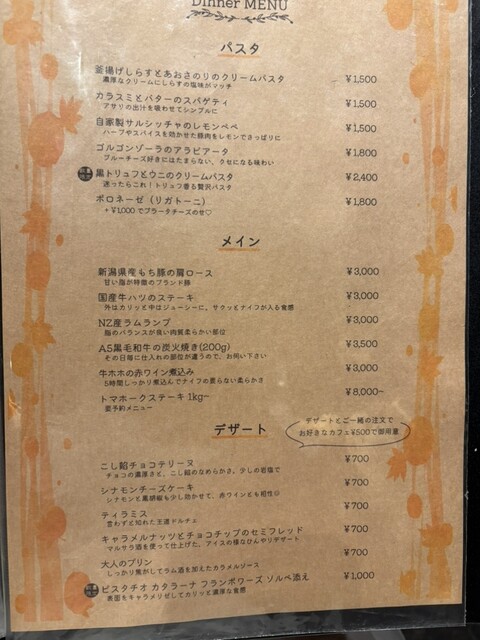 Dinner MENU
パスタ
釜揚げしらすとあおさのりのクリームパスタ ¥1,500
濃厚なクリームにしらすの塩味がマッチ
カラスミとバターのスパゲティ ¥1,500
アサリの出汁を吸わせてシンプルに
自家製サルシッチャのレモンペペ ¥1,500
ハーブやスパイスを効かせた豚肉をレモンでさっぱりに
ゴルゴンゾーラのアラビアータ ¥1,800
ブルーチーズ好きにはたまらない、クセになる味わい
黒トリュフとウニのクリームパスタ ¥2,400
迷ったらこれ！トリュフ香る贅沢パスタ
ボロネーゼ（リガトーニ） ¥1,800
+¥1,000でブラータチーズのせ♡
メイン
新潟県産もち豚の肩ロース ¥3,000
甘い脂が特徴のブランド豚
国産牛ハツのステーキ ¥3,000
外はカリッと中はジューシーに、サクッとナイフが入る食感
NZ産ラムランプ ¥3,000
脂のバランスが良い肉質柔らかい部位
A5黒毛和牛の炭火焼き(200g) ¥3,500
その日毎に仕入れの部位が違うので、お伺い下さい
牛ホホの赤ワイン煮込み ¥3,000
5時間しっかり煮込んでナイフの要らない柔らかさ
トマホークステーキ 1kg~ ¥8,000~
要予約メニュー
デザート
デザートとご一緒の注文で
お好きなカフェ¥500で御用意
こし餡チョコテリーヌ ¥700
チョコの濃厚さと、こし餡のなめらかさ、少しの岩塩で
シナモンチーズケーキ ¥700
シナモンと黒胡椒も少し効かせて、赤ワインとも相性◎
ティラミス ¥700
言わずと知れた王道ドルチェ
キャラメルナッツとチョコチップのセミフレッド ¥700
マルサラ酒を使って仕上げた、アイスの様なひんやりデザート
大人のプリン ¥700
しっかり焦がしてラム酒を加えたカラメルソース
ピスタチオ カタラーナ フランボワーズ ソルベ添え ¥1,000
表面をキャラメリゼしてカリッと濃厚な食感